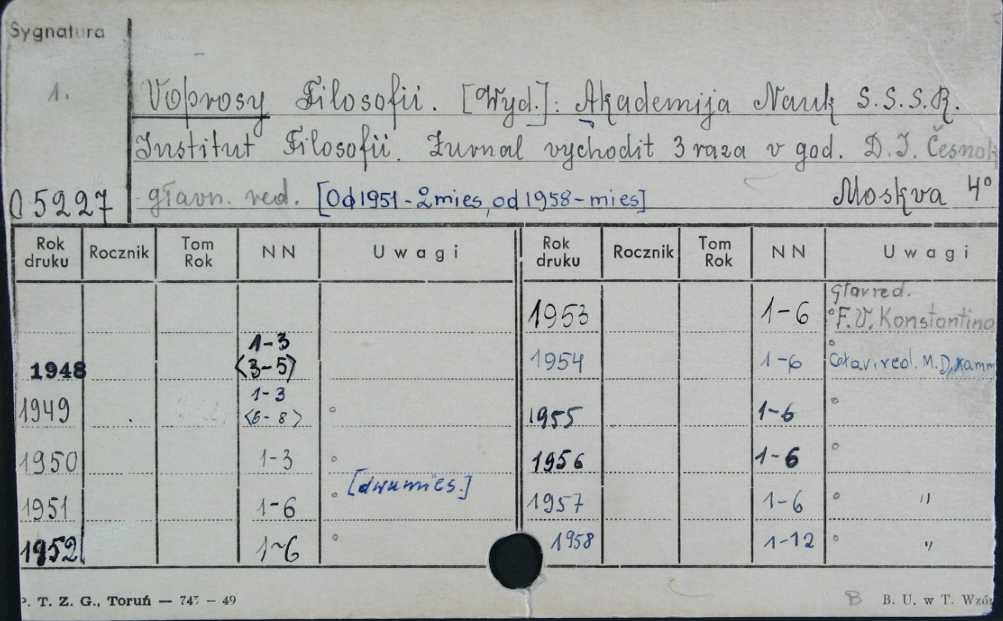 Sygnatura
1. Voprosy Filosofii. [Wyd.]: Akademija Nauk S.S.S.R.
Institut Filosofii. Žurnal vychodit 3 raza v god. D.I. Česnok
05227 gławn. red. [Od 1951 - 2mies, od 1958 - mies] Moskva 4°
Rok druku Rocznik Tom Rok NN Uwagi Rok druku Rocznik Tom Rok NN Uwagi
1953 1-6 Gław red. F.V. Konstantino
1948 1-3 <3-5> 1954 1-6 red. M.D.
1949 1-3 <6-8> 1955 1-6
1950 1-3 1956 1-6
1951 1-6 [dwumies.] 1957 1-6 "
1952 1-6 1958 1-12 "
P. T. Z. G., Toruń — 747 — 49 B B. U. w T. Wzór